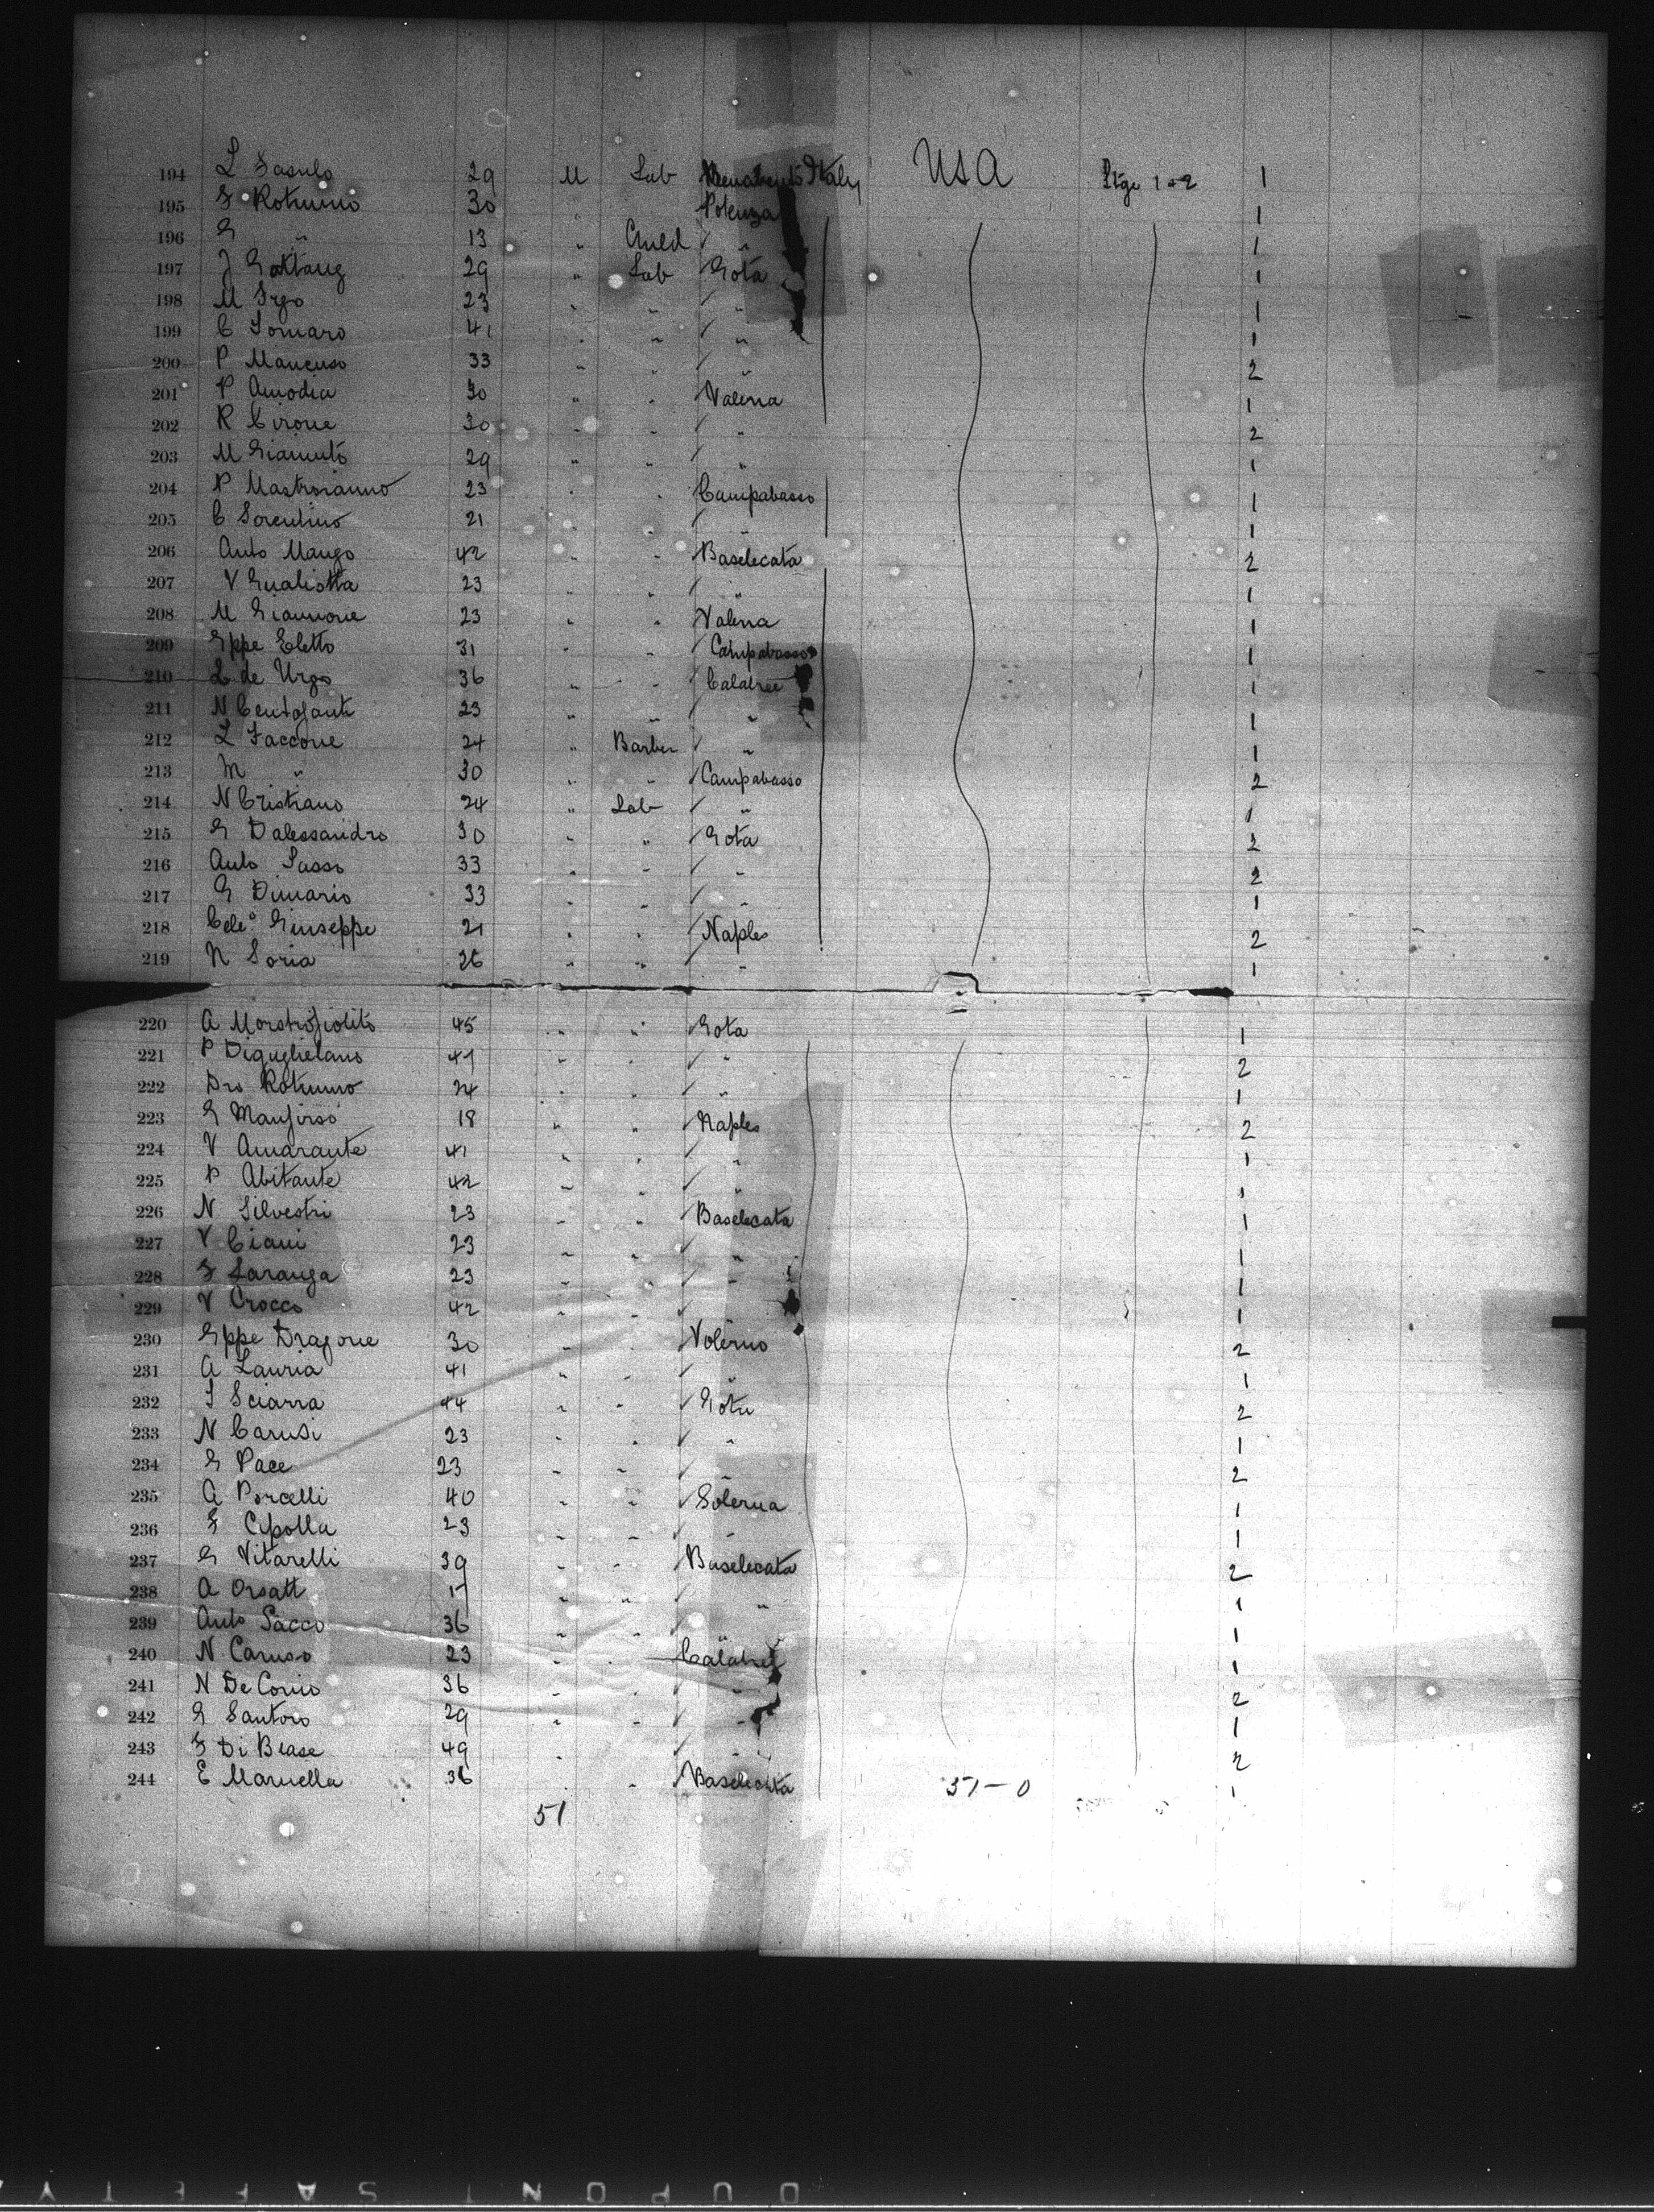 194 L Sasulo 29 M Lab Italy USA Stge 1 & 2 1
195 F Rotunno 30 " Potenza 1
196 G " 13 " Child " 1
197 J 29 " Lab Gota 1
198 M Irgo 23 " " " 1
199 C Tomaro 41 " " " 1
200 P Mancuso 33 " " " 2
201 P Amodia 30 " " Valena 1
202 R Cirone 30 " " " 2
203 M 29 " " " 1
204 P Mastroianno 23 " " Campabasso 1
205 C Sorentino 21 " " " 1
206 Anto Mango 42 " " Baselecata 2
207 V Gualiotta 23 " " " 1
208 M Giannone 23 " " Valena 1
209 Gppe Eletto 31 " " Campabasso 1
210 L de Urgo 36 " " Calabree 1
211 N Centofanti 23 " " " 1
212 L Faccone 24 " Barber " 1
213 M " 30 " " Campabasso 2
214 N Cristiano 24 " Lab " 1
215 G Dalessandro 30 " " Gota 2
216 Anto Sasso 33 " " " 2
217 G Dimario 33 " " " 1
218 Cele° Giuseppe 21 " " Naples 2
219 N Soria 26 " " " 1
220 A 45 " " Gota 1
221 P Diguglielamo 47 " " " 2
222 Dro Rotunno 24 " " " 1
223 G 18 " " Naples 2
224 V Amarante 41 " " " 1
225 P Abitante 42 " " " 1
226 N Silvestri 23 " " Baselecata 1
227 V Ciani 23 " " " 1
228 F Laranga 23 " " " 1
229 V Crocco 42 " " " 1
230 Gppe Dragone 30 " " Volerno 2
231 A Lauria 41 " " " 1
232 J Sciarra 44 " " Gota 2
233 N Carusi 23 " " " 1
234 G Pace 23 " " " 2
235 A Porcelli 40 " " Solerna 1
236 F Cipolla 23 " " " 1
237 G Vitarelli 39 " " Baselecata 2
238 A Orsatt 17 " " " 1
239 Anto Sacco 36 " " " 1
240 N Caruso 23 " " Calabree 1
241 N De Corio 36 " " " 2
242 G Santoro 29 " " " 1
243 F Di Blase 49 " " " 2
244 E Maruella 36 " " Baselecata 1
51 51-0
DUPONT SAFETY